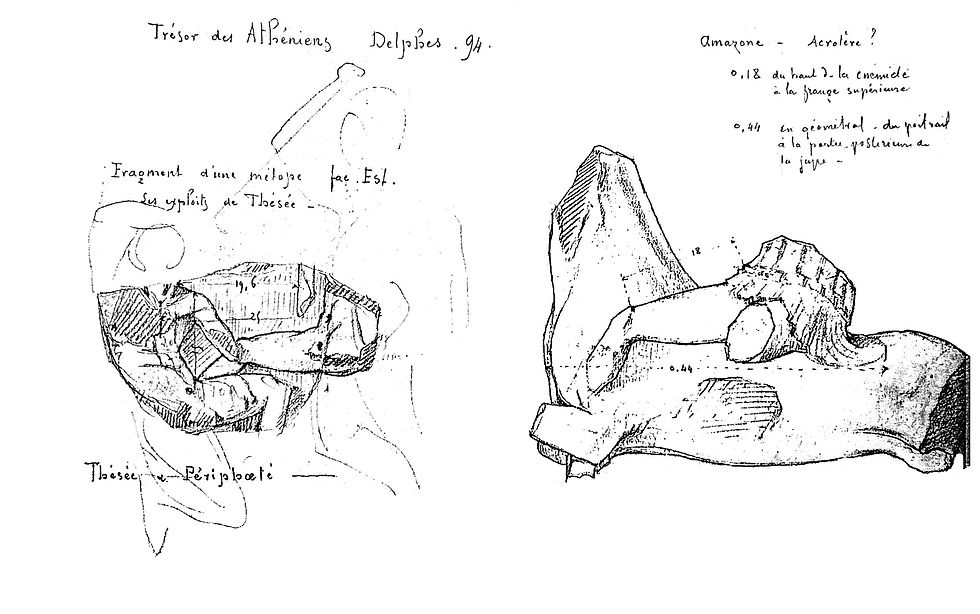 Trésor des Athéniens Delphes . 94 .
Fragment d'une métope fac. Est.
Les exploits de Thésée _
19,6
25
Thésée & Périphœté —
Amazone - Acrotère ?
0,18 du haut d. la cnémide
à la frange supérieure
0,44 en géométral . du poitrail
à la partie postérieure de
la jupe -
18
0.44